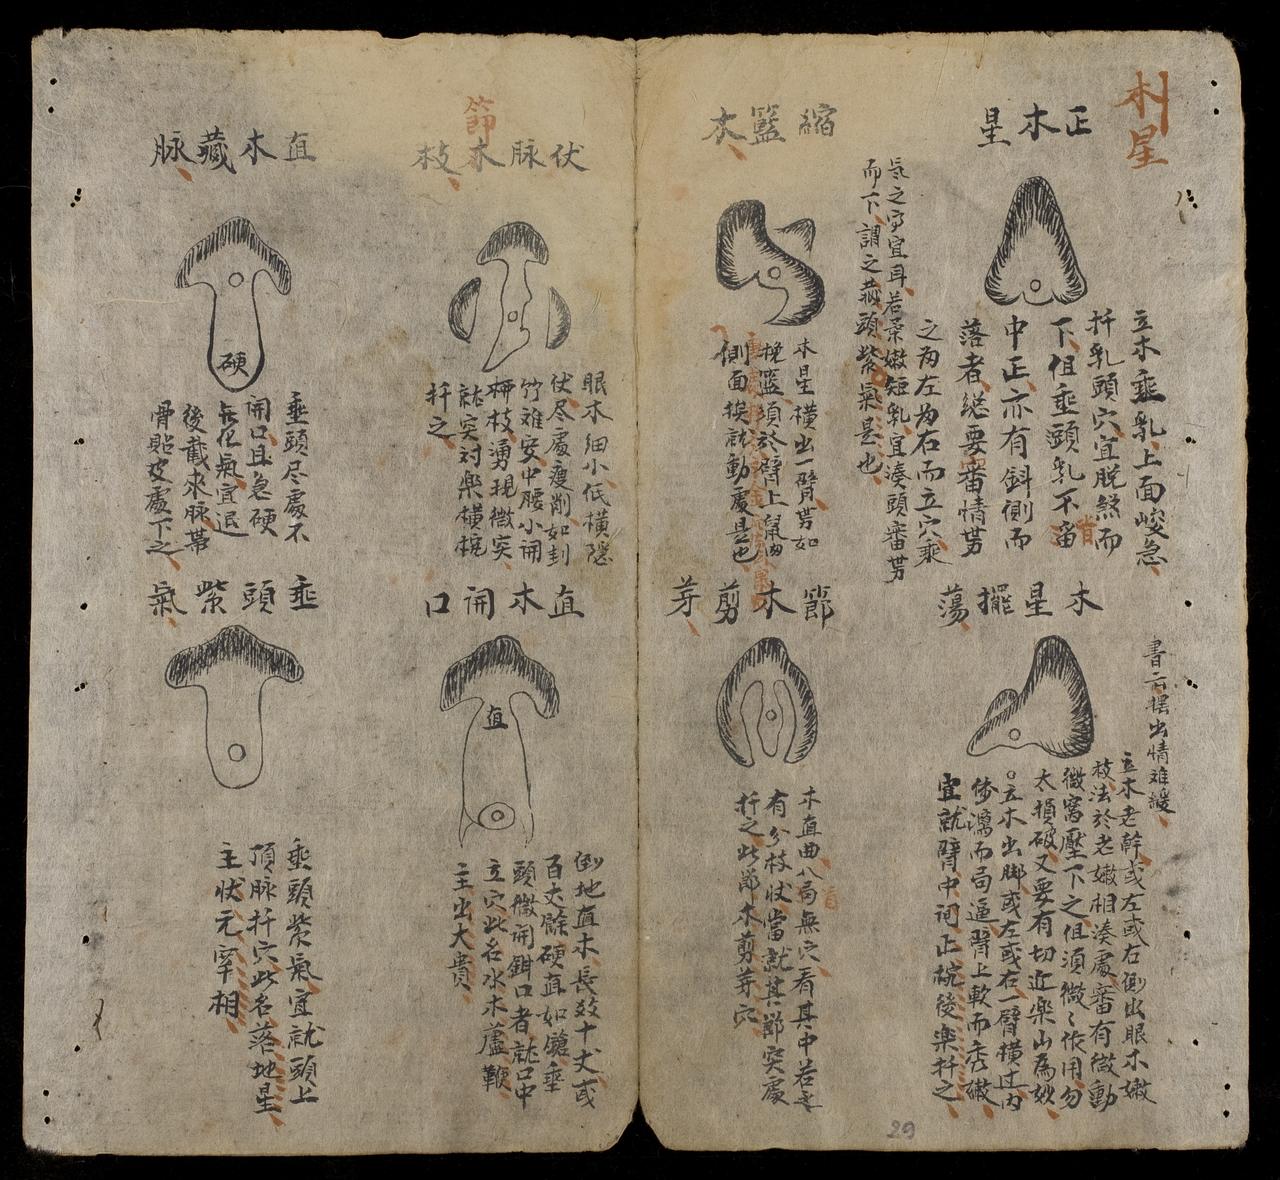 木星
正木星
立木垂乳上面峻急
扦乳頭穴宜脱煞而
下但垂頭乳不畱
中正亦有斜側而
落者総要審情势
之为左为右而立穴乘
氣之穴宜耳若柔嫩短乳宜湊頭審势
而下謂之垂頭紫氣是也
縮籃木
木星橫出一臂势如
挽籃須於臂上鼠肉
側面挨就動處是也
木星擺蕩
書云擺出情难緩
立木老幹或左或右側出眼木嫩
枝法於老嫩相湊處審有微動
微窩壓下之但須微微作用勿
太損破又要有切近樂山為妙
立木出脚或左或右一臂橫过内
傍灣而局逼臂上軟而秀嫩
宜就臂中间正椀後樂扦之
節木剪芽
木直曲八局無穴看其中若是
有分枝狀當就其節突處
扦之此節木剪芽穴
節
伏脉木枝
眼木細小低橫隱
伏尽處瘦削如刲
竹难安中腰小開
柵枝湧現微突
就突对樂橫椀
扦之
直木開口
直
倒地直木長数十丈或
百丈餘硬直如鎗垂
頭微開鉗口者就口中
立穴此名水木蘆鞭
主出大貴
直木藏脉
硬
垂頭尽處不
開口且急硬
無化氣宜退
後截來脉帶
骨貼皮處下之
垂頭紫氣
垂頭紫氣宜就頭上
頂脉扦穴此名落地星
主状元宰相
29